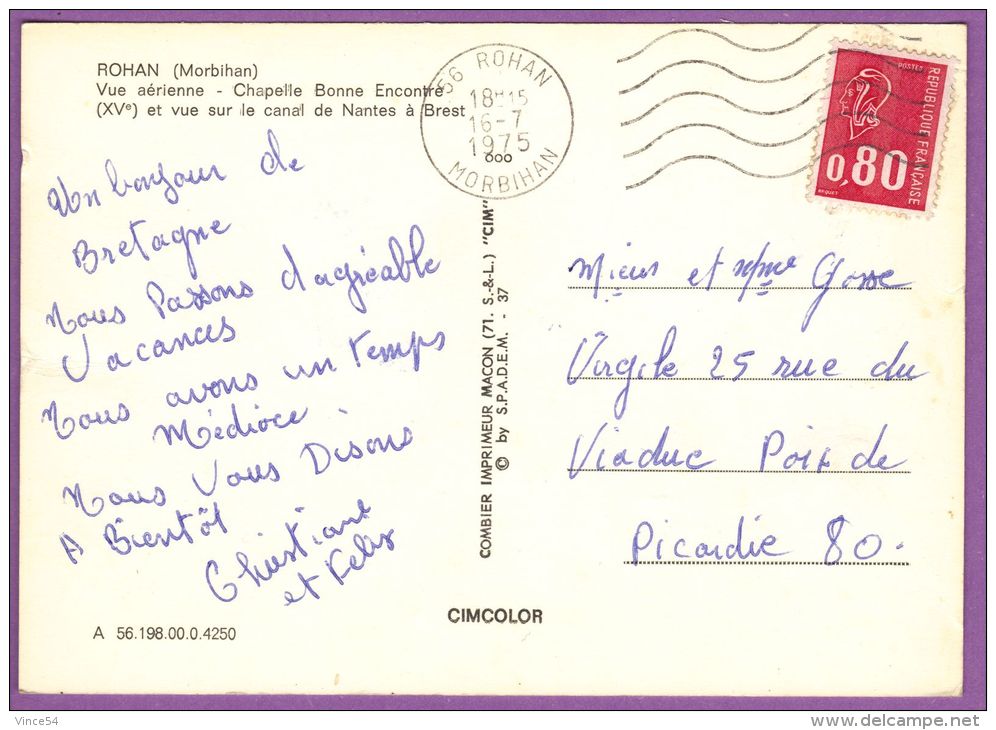 ROHAN (Morbihan)
Vue aérienne - Chapelle Bonne Encontre
(XVe) et vue sur le canal de Nantes à Brest
56 ROHAN
18H15
16-7
1975
MORBIHAN
POSTES
REPUBLIQUE FRANÇAISE
0,80
BEQUET
Un bonjour de
Bretagne
Nous Passons d'agréable
Vacances
Nous avons un temps
Médioce
Nous Vous Disons
A Bientôt
Christiane
et Félix
COMBIER IMPRIMEUR MACON (71. S.-&-L.) "CIM"
© by S.P.A.D.E.M. - 37
Mieur et Mme
Virgile 25 rue du
Viaduc Poix de
Picardie 80.
CIMCOLOR
A 56.198.00.0.4250
Vince54
delcampe.net